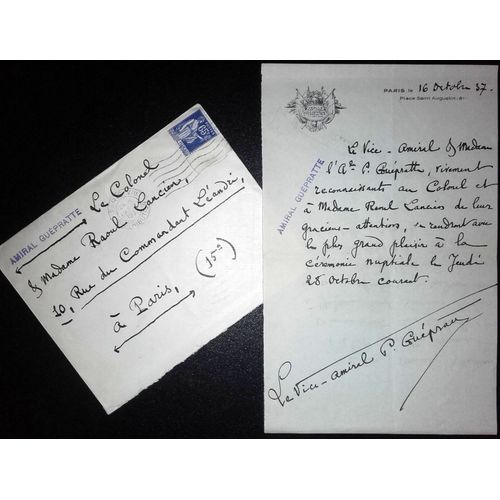 AMIRAL GUÉPRATTE
Le Colonel
& Madame Raoul Lancien,
10, Rue du Commandant Léandri,
à Paris,
(15e)
65c
PARIS, le 16 Octobre 37.
Place Saint Augustin,
AMIRAL GUÉPRATTE
Le Vice-Amiral & Madame
l'Ale P. Guépratte, vivement
reconnaissants au Colonel et
à Madame Raoul Lancien de leurs
gracieuses attentions, se rendront avec
le plus grand plaisir à la
cérémonie nuptiale le Jeudi
28 Octobre courant.
Le Vice-Amiral P. Guépratte